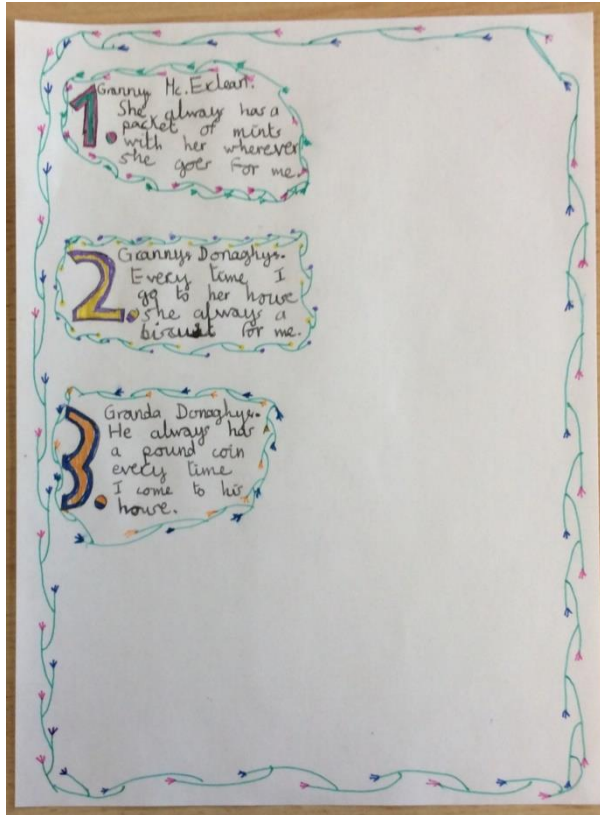 1. Granny Mc.Exleart.
She always has a
packet of mints
with her wherever
she goes for me.
2. Grannys Donaghys.
Every time I
go to her house
she always a
biscuit for me.
3. Granda Donaghys.
He always has
a pound coin
every time
I come to his
house.